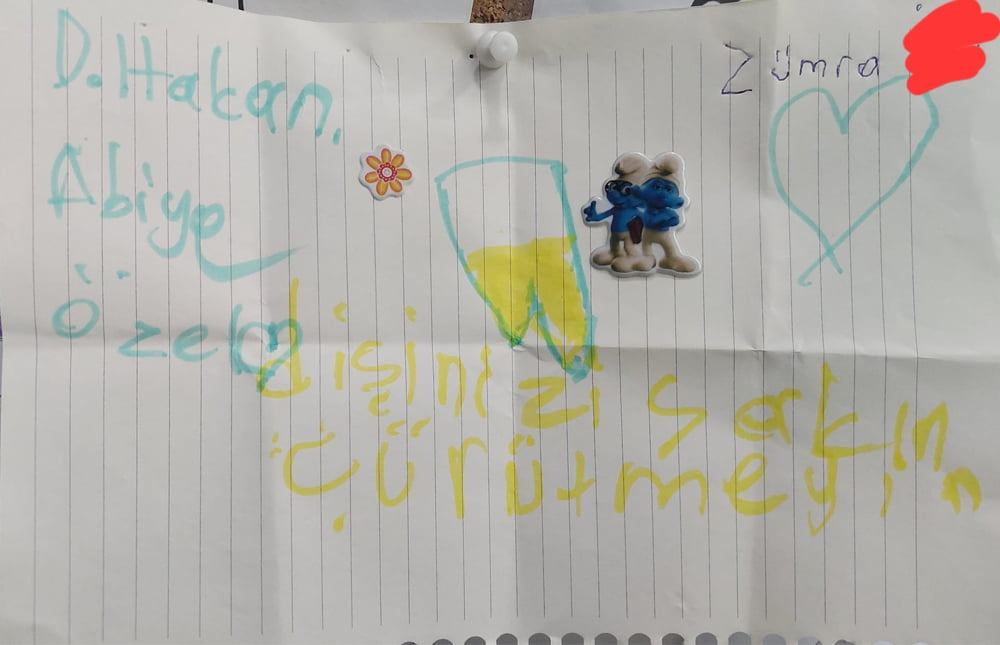 D. Hakan,
Abiye
özel
Zümra
dişinizi sakın
Çürütmeyin